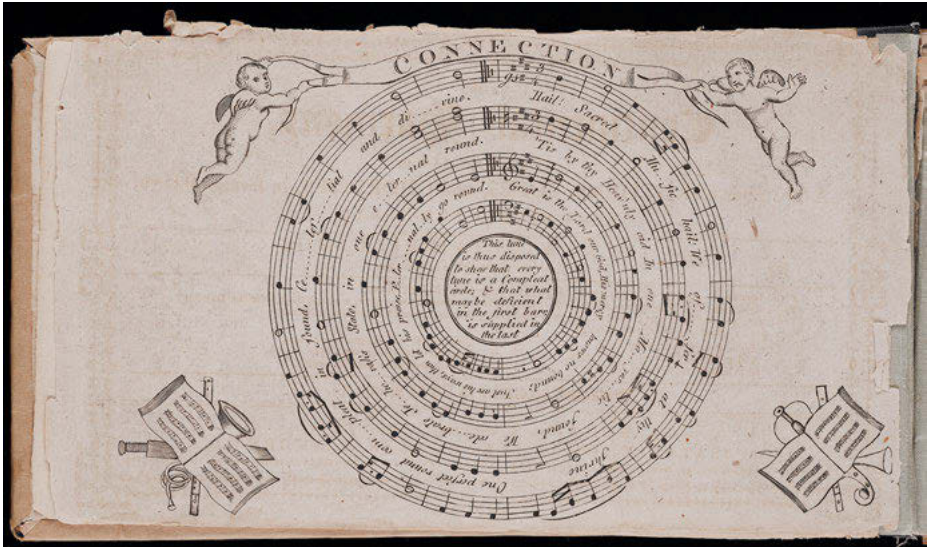 CONNECTION
Hail! Sacred Mu..sic hail! We at thy Shrine
One perfect round com..pleat in sound, Ce......les......tial and di.....vine.
'Tis by thy Heav'nly aid In one
found, We cele..brate State, in one e..ter..nal round.
Great is the Lord our God, His mercy knows no bound;
Just are his ways, go round.
This tune
is thus disposed
to shew that every
tune is a Compleat
circle; & that what
may be deficient
in the first barr
is supplied in
the last